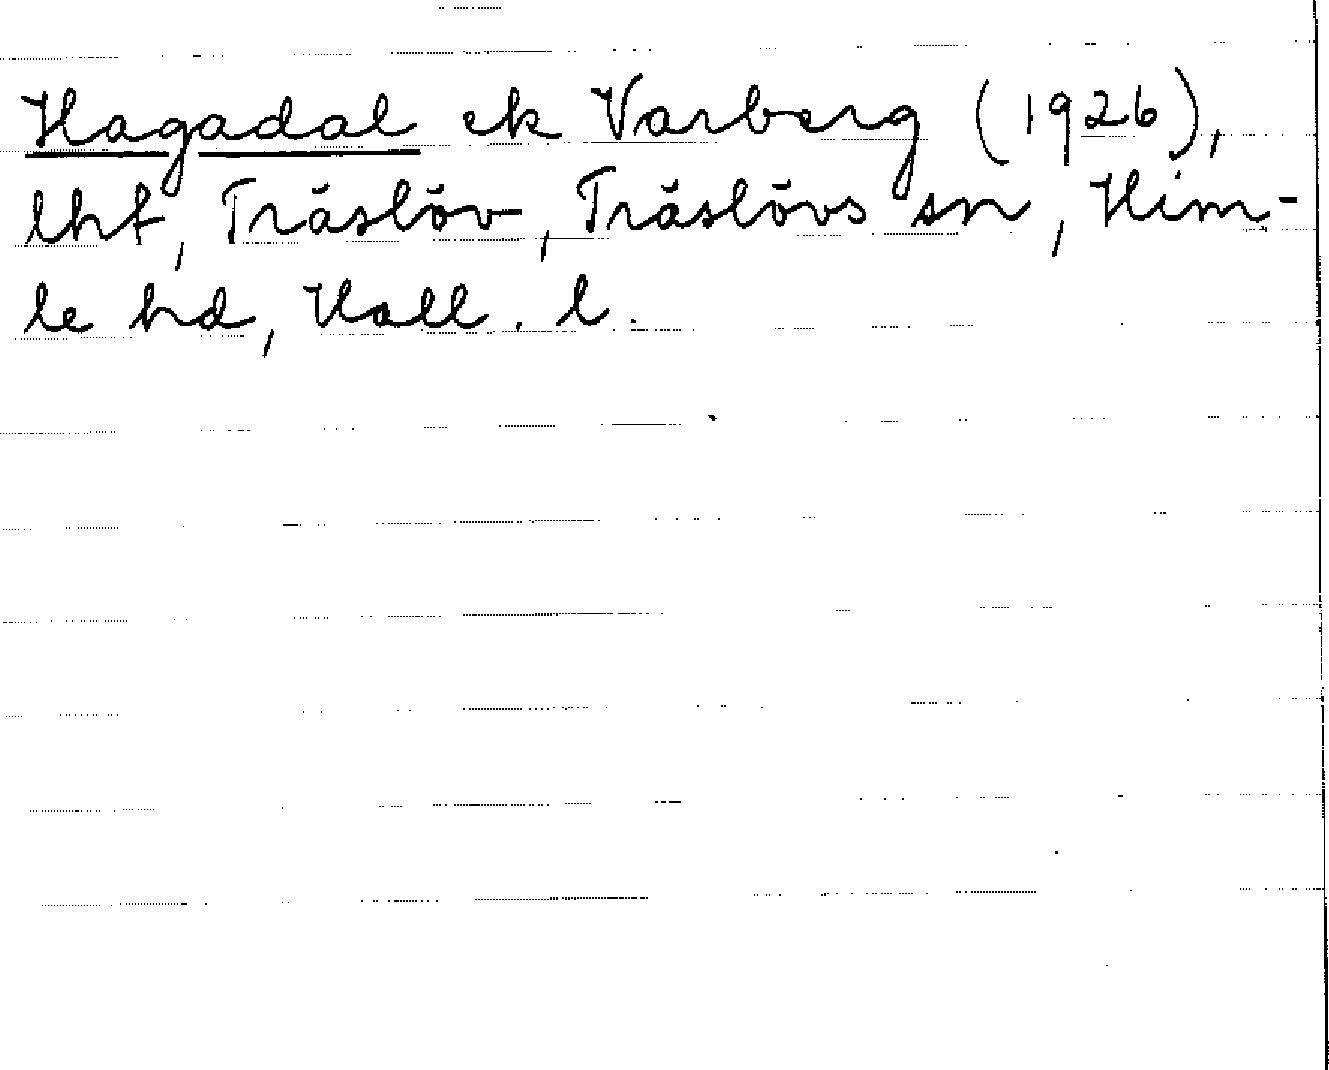 Hagadal ek Varberg (1926),
lht, Träslöv, Träslövs sn, Him-
le hd, Hall. l.